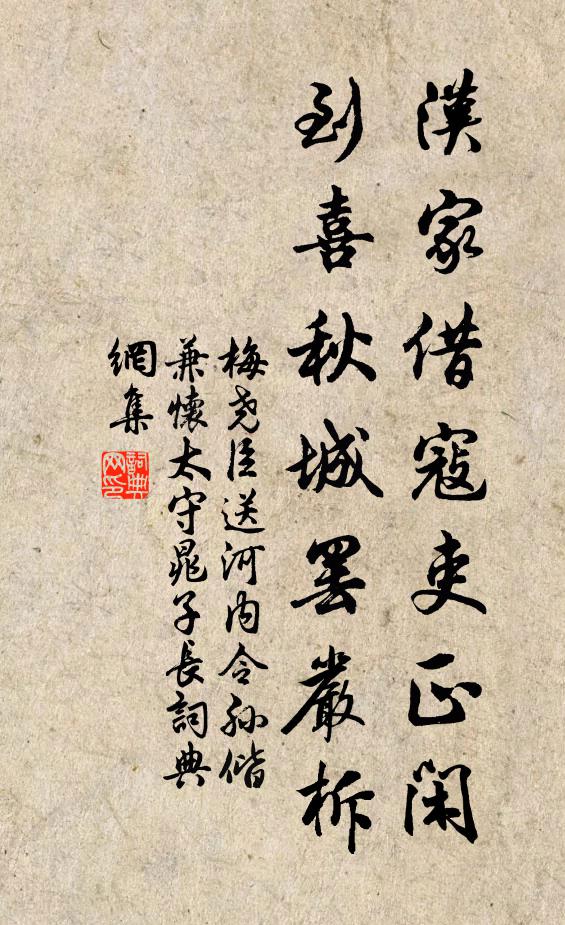 漢家借寇吏正閑
到喜秋城罷嚴柝
梅尧臣送河内令孙偕
兼懷太守晁子長詞典
網集
詞典網印